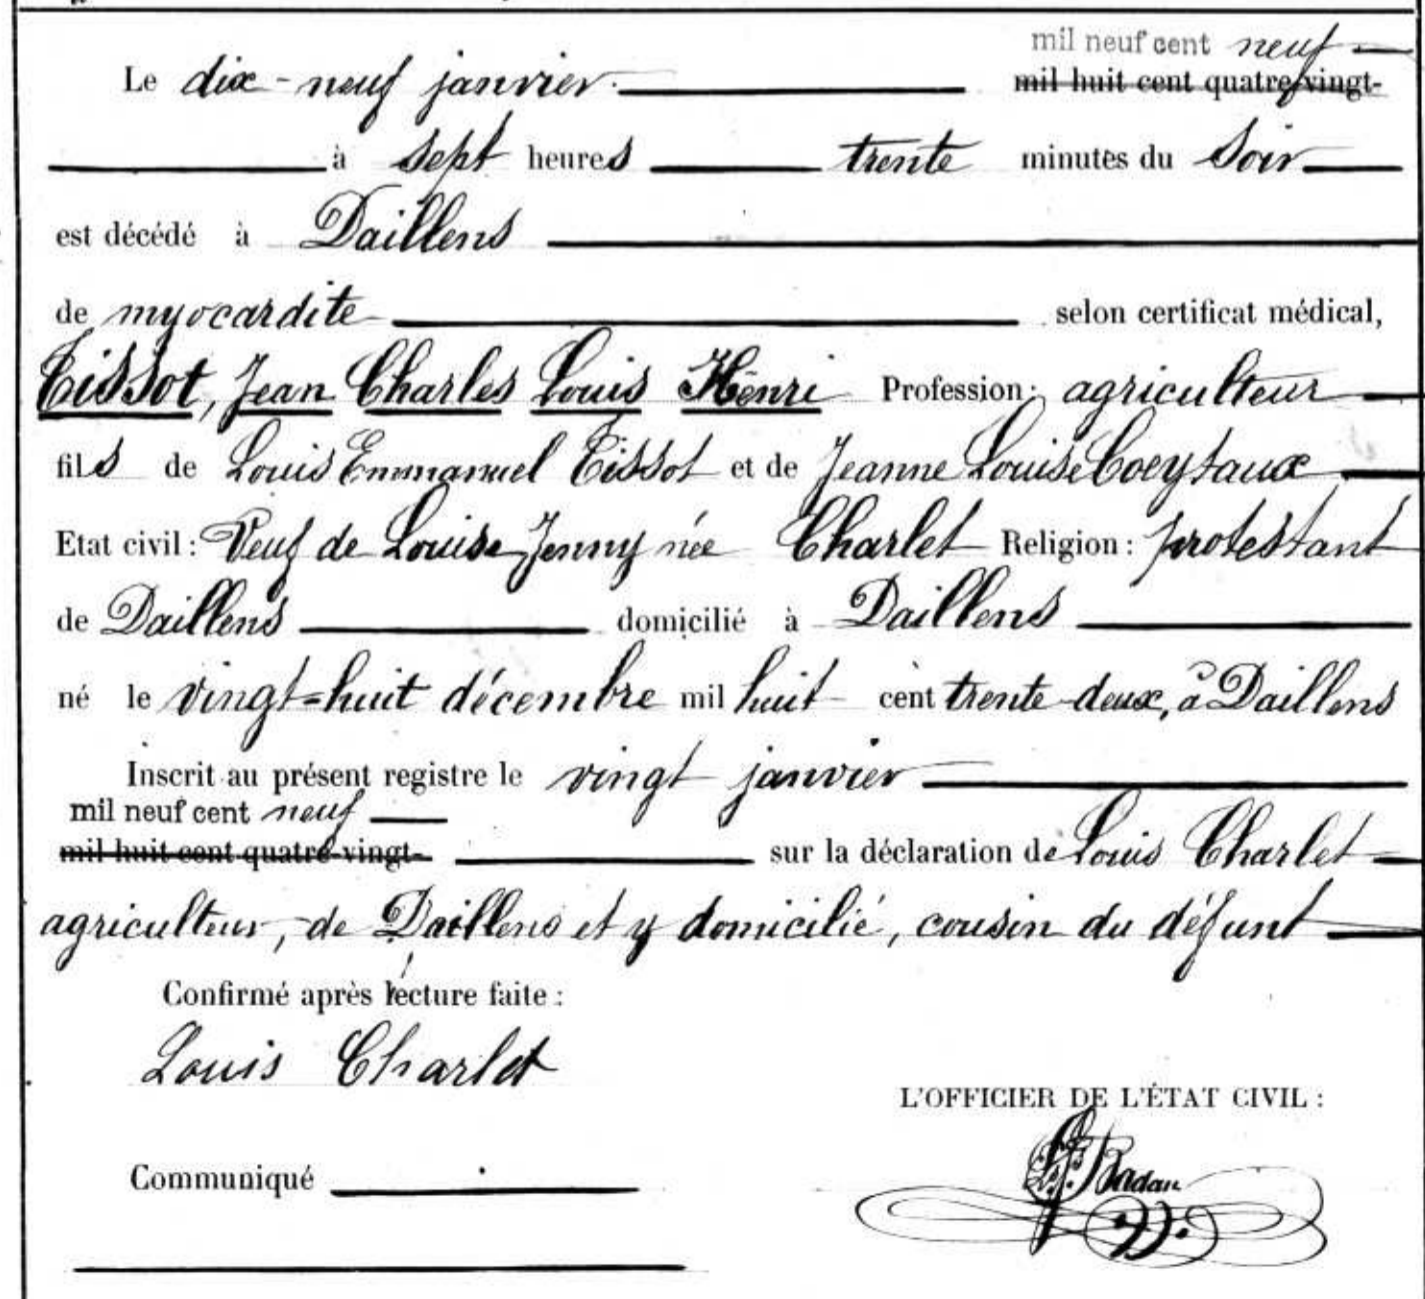 mil neuf cent neuf
Le dix-neuf janvier mil huit cent quatre-vingt-
à sept heures trente minutes du soir
est décédé à Daillens
de myocardite selon certificat médical,
Tissot, Jean Charles Louis Henri Profession: agriculteur
fils de Louis Emmanuel Tissot et de Jeanne Louise Coeytaux
Etat civil: Veuf de Louise Jenny née Charlet Religion: protestant
de Daillens domicilié à Daillens
né le vingt-huit décembre mil huit cent trente-deux, à Daillens
Inscrit au présent registre le vingt janvier
mil neuf cent neuf
mil huit cent quatre-vingt- sur la déclaration de Louis Charlet
agriculteur, de Daillens et y domicilié, cousin du défunt
Confirmé après lecture faite:
Louis Charlet
L'OFFICIER DE L'ÉTAT CIVIL:
Badan
Communiqué